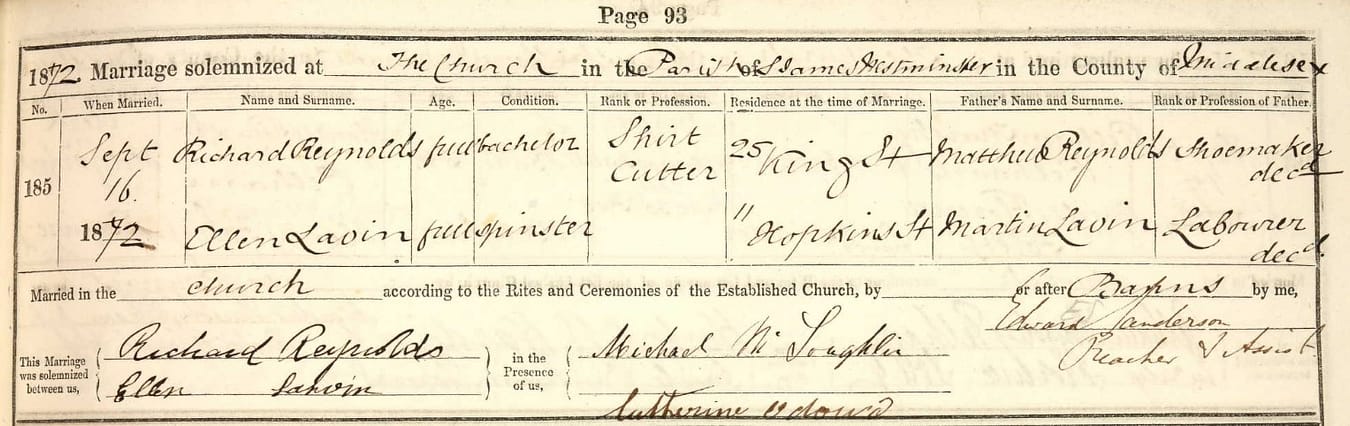 Page 93
1872 Marriage solemnized at The Church in the Parish of St James Westminster in the County of Middlesex
No. When Married. Name and Surname. Age. Condition. Rank or Profession. Residence at the time of Marriage. Father's Name and Surname. Rank or Profession of Father.
185 Sept 16. 1872
Richard Reynolds full bachelor Shirt Cutter 25 King St Matthew Reynolds Shoemaker decd
Ellen Lavin full spinster 11 Hopkins St Martin Lavin Labourer decd.
Married in the church according to the Rites and Ceremonies of the Established Church, by or after Banns by me,
Edward Sanderson
Preacher & Assist
This Marriage was solemnized between us,
Richard Reynolds
Ellen Larvin
in the Presence of us,
Michael Mc Loughlin
Catherine Odowd